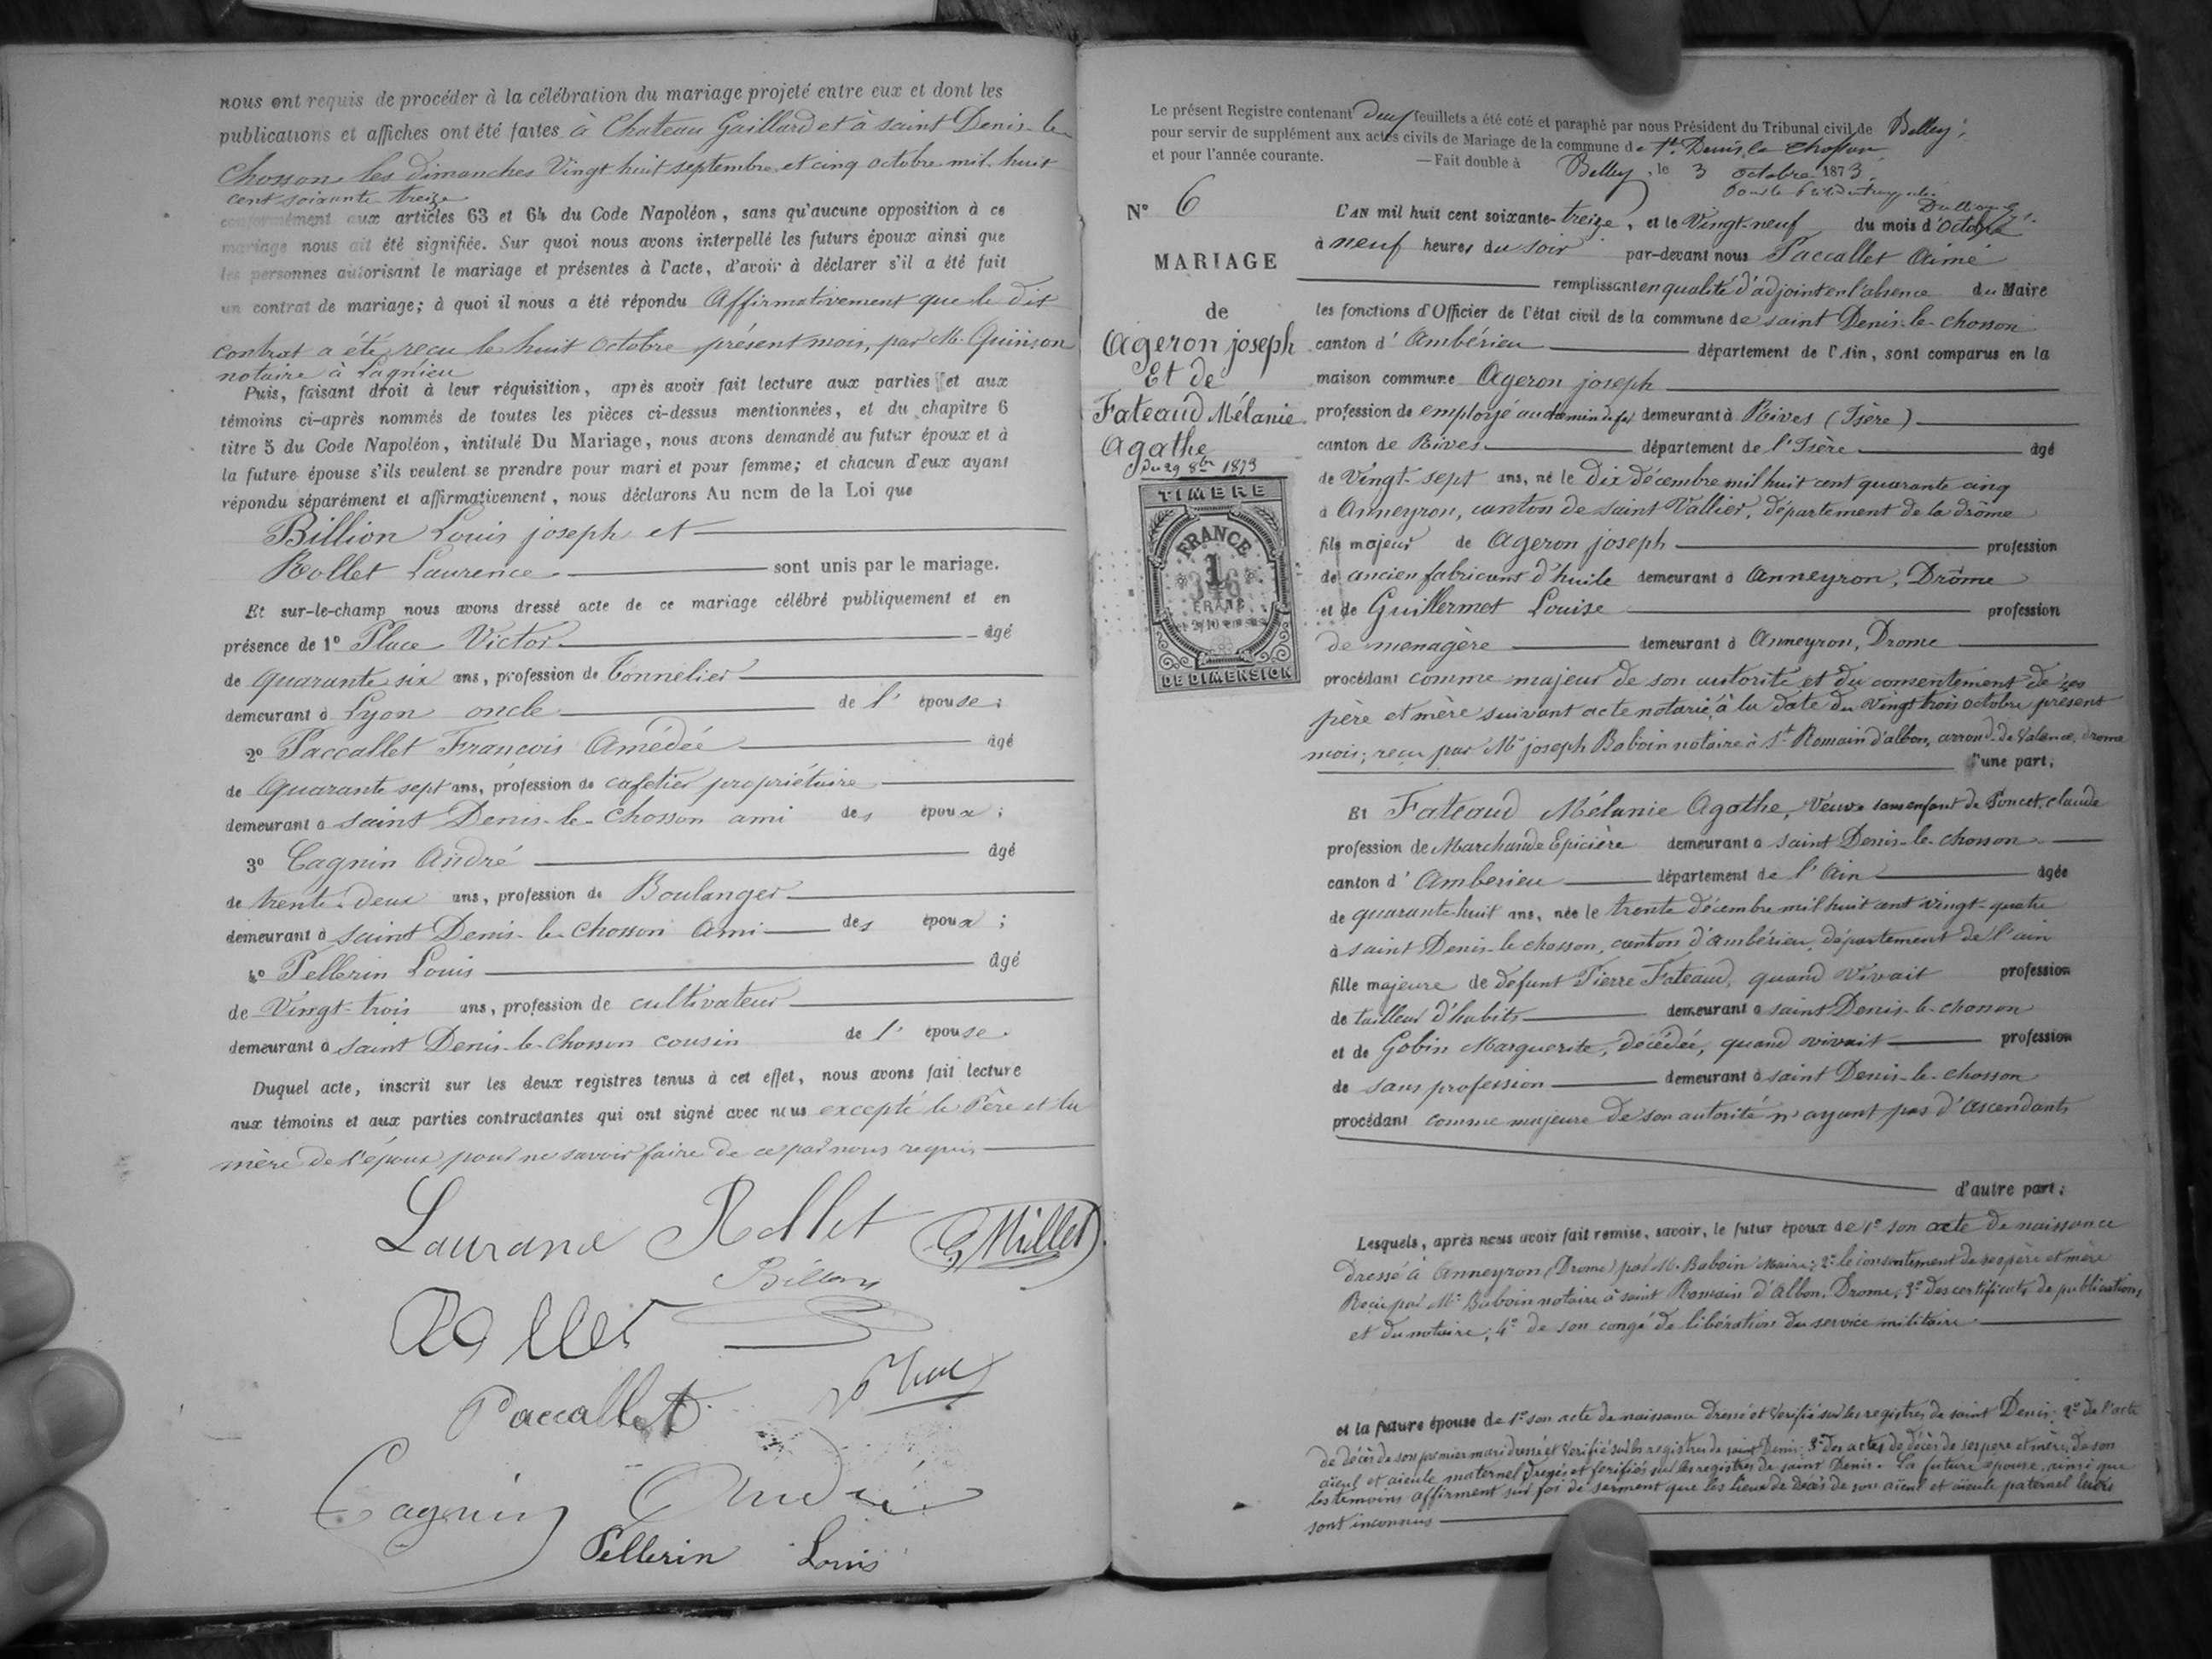 nous ont requis de procéder à la célébration du mariage projeté entre eux et dont les
publications et affiches ont été faites à Chateau Gaillard et à saint Denis-le-
Chosson les dimanches Vingt huit septembre et cinq octobre mil huit
cent soixante treize
conformément aux articles 63 et 64 du Code Napoléon, sans qu'aucune opposition à ce
mariage nous ait été signifiée. Sur quoi nous avons interpellé les futurs époux ainsi que
les personnes autorisant le mariage et présentes à l'acte, d'avoir à déclarer s'il a été fait
un contrat de mariage; à quoi il nous a été répondu Affirmativement que le dit
contrat a été reçu le huit Octobre présent mois, par M. Quinson
notaire à Lagnieu
Puis, faisant droit à leur réquisition, après avoir fait lecture aux parties et aux
témoins ci-après nommés de toutes les pièces ci-dessus mentionnées, et du chapitre 6
titre 5 du Code Napoléon, intitulé Du Mariage, nous avons demandé au futur époux et à
la future épouse s'ils veulent se prendre pour mari et pour femme; et chacun d'eux ayant
répondu séparément et affirmativement, nous déclarons Au nom de la Loi que
Billion Louis joseph et
Rollet Laurence sont unis par le mariage.
Et sur-le-champ nous avons dressé acte de ce mariage célébré publiquement et en
présence de 1º Place Victor âgé
de quarante six ans, profession de Tonnelier
demeurant à Lyon oncle de l' épouse;
2º Paccallet François Amédée âgé
de Quarante sept ans, profession de cafetier propriétaire
demeurant à saint Denis-le-Chosson ami des époux;
3º Cagnin André âgé
de trente-deux ans, profession de Boulanger
demeurant à saint Denis-le-Chosson Ami des époux;
4º Pellerin Louis âgé
de Vingt-trois ans, profession de cultivateur
demeurant à saint Denis-le-Chosson cousin de l' épouse.
Duquel acte, inscrit sur les deux registres tenus à cet effet, nous avons fait lecture
aux témoins et aux parties contractantes qui ont signé avec nous excepté le Père et la
mère de l'époux pour ne savoir faire de ce par nous requis
Laurance Rollet G Millet
Billion
Rollet
Paccallet
Cagnin André
Pellerin Louis
Le présent Registre contenant deux feuillets a été coté et paraphé par nous Président du Tribunal civil de Belley,
pour servir de supplément aux actes civils de Mariage de la commune de St. Denis le Chosson
et pour l'année courante. — Fait double à Belley, le 3 octobre 1873.
Nº 6
MARIAGE
de
Ageron joseph
Et de
Fateaud Mélanie
Agathe
Du 29 8bre 1873
TIMBRE
FRANCE
1
FRANC
et 2/10 en sus
DE DIMENSION
L'AN mil huit cent soixante-treize, et le Vingt-neuf du mois d'Octobre
à neuf heures du soir par-devant nous Paccallet Aimé
remplissant en qualité d'adjoint en l'absence du Maire
les fonctions d'Officier de l'état civil de la commune de saint Denis-le-chosson
canton d' Ambérieu département de l'Ain, sont comparus en la
maison commune Ageron joseph
profession de employé au chemin de fer demeurant à Rives (Isère)
canton de Rives département de l'Isère âgé
de Vingt-sept ans, né le dix décembre mil huit cent quarante cinq
à Anneyron, canton de saint Vallier, département de la drôme
fils majeur de Ageron joseph profession
de ancien fabricant d'huile demeurant à Anneyron, Drôme
et de Guillermet Louise profession
de menagère demeurant à Anneyron, Drome
procédant comme majeur de son autorité et du consentement de ses
père et mère suivant acte notarié, à la date du vingt trois octobre présent
mois; reçu par Me joseph Baboin notaire à St Romain d'albon, arrond. de Valence, drome
d'une part;
Et Fateaud Mélanie Agathe, Veuve sans enfant de Poncet, claude
profession de Marchande Epicière demeurant à saint Denis-le-chosson
canton d' Amberieu département de l'Ain âgée
de quarante-huit ans, née le trente décembre mil huit cent vingt-quatre
à saint Denis-le-chosson, canton d'ambérieu, département de l'ain
fille majeure de défunt Pierre Fateaud, quand vivait profession
de tailleur d'habits demeurant à saint Denis-le-chosson
et de Gobin Marguerite, décédée, quand vivait profession
de sans profession demeurant à saint Denis-le-chosson
procédant comme majeure de son autorité n'ayant pas d'ascendants
d'autre part;
Lesquels, après nous avoir fait remise, savoir, le futur époux de 1º son acte de naissance
dressé à Anneyron (Drome) par M. Baboin Maire; 2º le consentement de ses père et mère
Reçu par Me Baboin notaire à saint Romain d'Albon, Drome; 3º des certificats de publications
et du notaire; 4º de son congé de libération du service militaire
et la future épouse de 1º son acte de naissance dressé et Verifié sur les registres de saint Denis; 2º de l'acte
de décès de son premier mari dressé et Verifié sur les registres de saint Denis; 3º des actes de décès de ses pere et mère, de son
aïeul et aïeule maternel dressés et ferifiés sur les registres de saint Denis. La future epouse, ainsi que
les temoins affirment sur foi de serment que les lieux de Décès de son aïeul et aïeule paternel leurs
sont inconnus